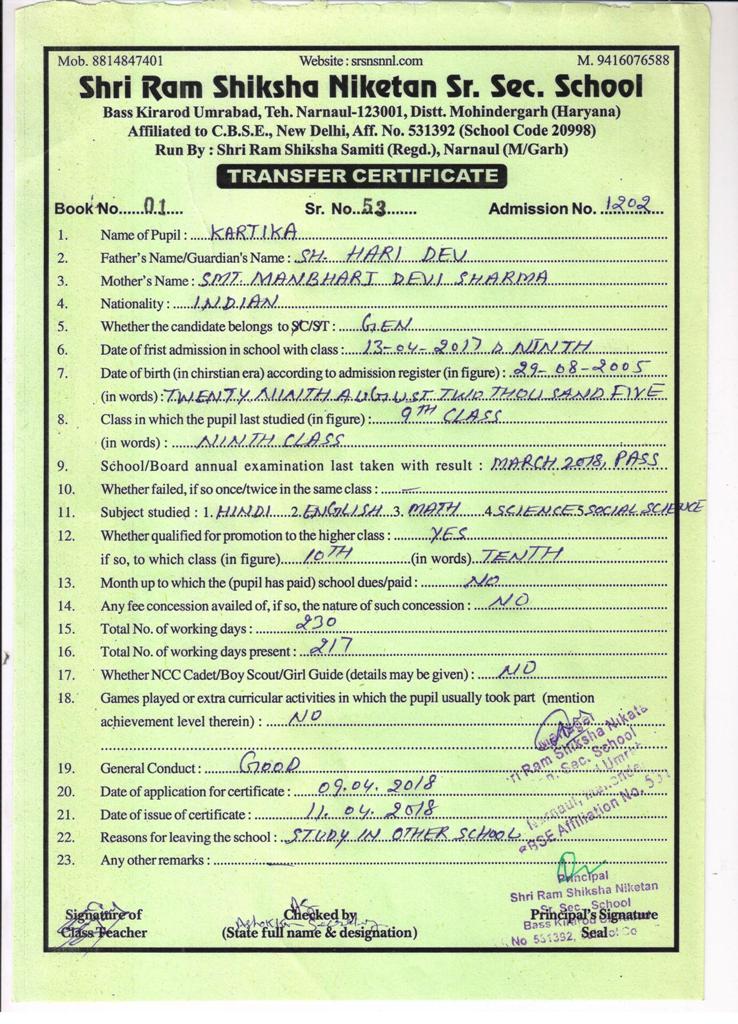 Mob. 8814847401 Website : srsnsnnl.com M. 9416076588
Shri Ram Shiksha Niketan Sr. Sec. School
Bass Kirarod Umrabad, Teh. Narnaul-123001, Distt. Mohindergarh (Haryana)
Affiliated to C.B.S.E., New Delhi, Aff. No. 531392 (School Code 20998)
Run By : Shri Ram Shiksha Samiti (Regd.), Narnaul (M/Garh)
TRANSFER CERTIFICATE
Book No. 01 Sr. No. 53 Admission No. 1202
1. Name of Pupil : KARTIKA
2. Father's Name/Guardian's Name : SH. HARI DEV
3. Mother's Name : SMT. MANBHARI DEVI SHARMA
4. Nationality : INDIAN
5. Whether the candidate belongs to SC/ST : GEN
6. Date of frist admission in school with class : 13-04-2017 NINTH
7. Date of birth (in chirstian era) according to admission register (in figure) : 29-08-2005
(in words) : TWENTY NINTH AUGUST TWO THOUSAND FIVE
8. Class in which the pupil last studied (in figure) : 9TH CLASS
(in words) : NINTH CLASS
9. School/Board annual examination last taken with result : MARCH 2018, PASS
10. Whether failed, if so once/twice in the same class : —
11. Subject studied : 1. HINDI 2. ENGLISH 3. MATH 4 SCIENCE 5 SOCIAL SCIENCE
12. Whether qualified for promotion to the higher class : YES
if so, to which class (in figure) 10TH (in words) TENTH
13. Month up to which the (pupil has paid) school dues/paid : NO
14. Any fee concession availed of, if so, the nature of such concession : NO
15. Total No. of working days : 230
16. Total No. of working days present : 217
17. Whether NCC Cadet/Boy Scout/Girl Guide (details may be given) : NO
18. Games played or extra curricular activities in which the pupil usually took part (mention
achievement level therein) : NO
Manager
ri Ram Shiksha Niketa
n. Sec. School
19. General Conduct : GOOD
20. Date of application for certificate : 09.04.2018
21. Date of issue of certificate : 11.04.2018
BSE Affiliation No. 531
22. Reasons for leaving the school : STUDY IN OTHER SCHOOL
23. Any other remarks : —
Principal
Shri Ram Shiksha Niketan
Sr. Sec. School
Signature of Checked by Principal's Signature
Class Teacher (State full name & designation) Seal
No 531392,